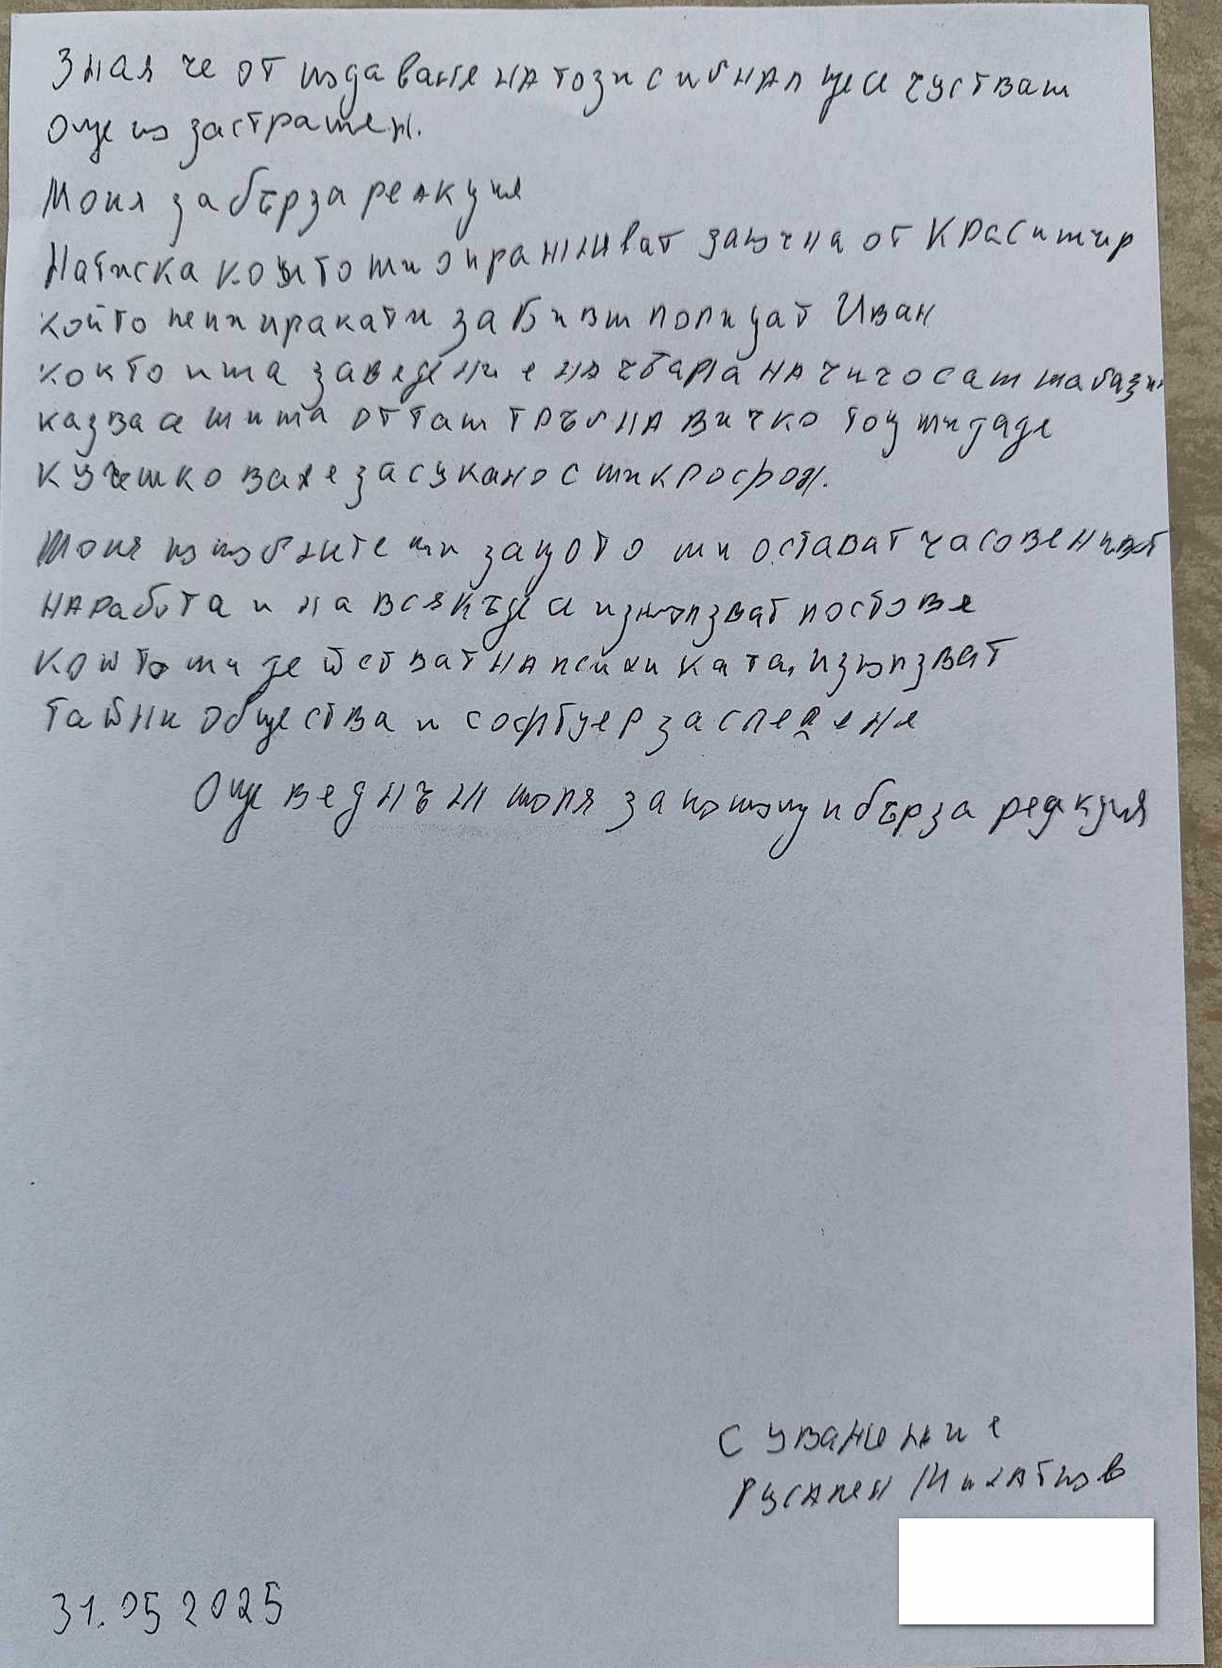 Зная че от подаване на този сигнал ще се чуствам
още по застрашен.
Моля за бърза реакция
Натиска който ми оуражняват започна от Красимир
който ме изиракати за бивш полицат Иван
който има заведение на гбара на чичо сам магазин
казва се мима от там тръгна вичко той ми даде
кучешко вале засукано с микрофон.
Моля помогнете ми защото ми остават часове живот
на работа и на всякъде се използват постове
който ми действат на психиката, използват
тайни общества и софтуер за следене
Още веднъж моля за помощ и бърза реакция
С уважение
Русалин Михайлов
31.05 2025